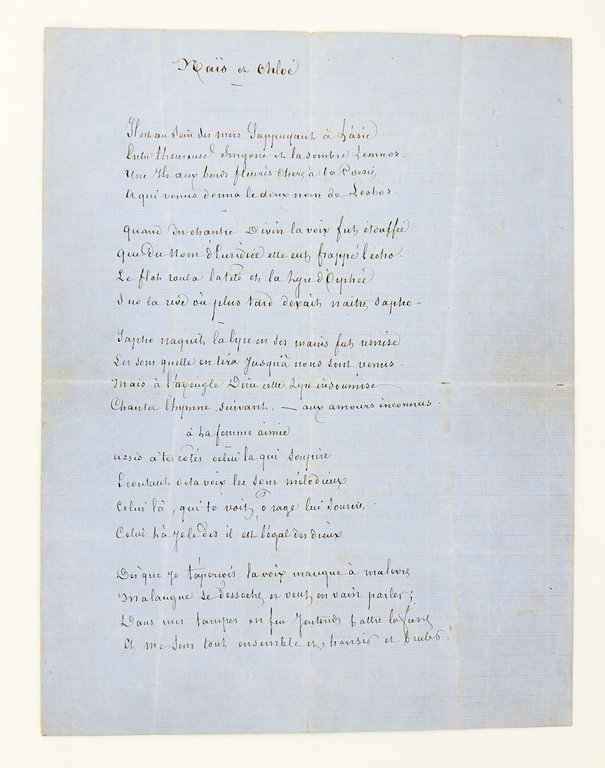 Naïs et Chloé
Il est au Sein des mers S'appuyant à L'asie
Entre l'heureuse Smyrne et la sombre Lemnos.
Une Ile aux bords fleuris chere à la Poesie
A qui venus donna le doux nom de Lesbos
quand du chantre Divin la voix fut étouffée
que Du Nom d'Euridice elle eut frappé l'écho.
Le flot roula la tete et la Lyre d'Orphée
Sur la rive où plus tard devait naitre Sapho -
Sapho naquit la lyre en ses mains fut remise
Les sons quelle en tira Jusqu'à nous sont venus
Mais à l'aveugle Dieu cette Lyre insoumise
Chanta l'hymne suivant. — aux amours inconnus.
à ta femme aimée
assis à tes cotés celui la qui soupire
Ecoutant de ta voix les sons mélodieux
Celui là, qui te voit, ô rage lui sourire
Celui là Je le dis il est l'égal des dieux
Des que Je t'aperçois la voix manque à ma levre
Ma langue se desseche et veut en vain parler;
Dans mes tempes en feu J'entends battre la fievre
Et me sens tout ensemble et transir et bruler!